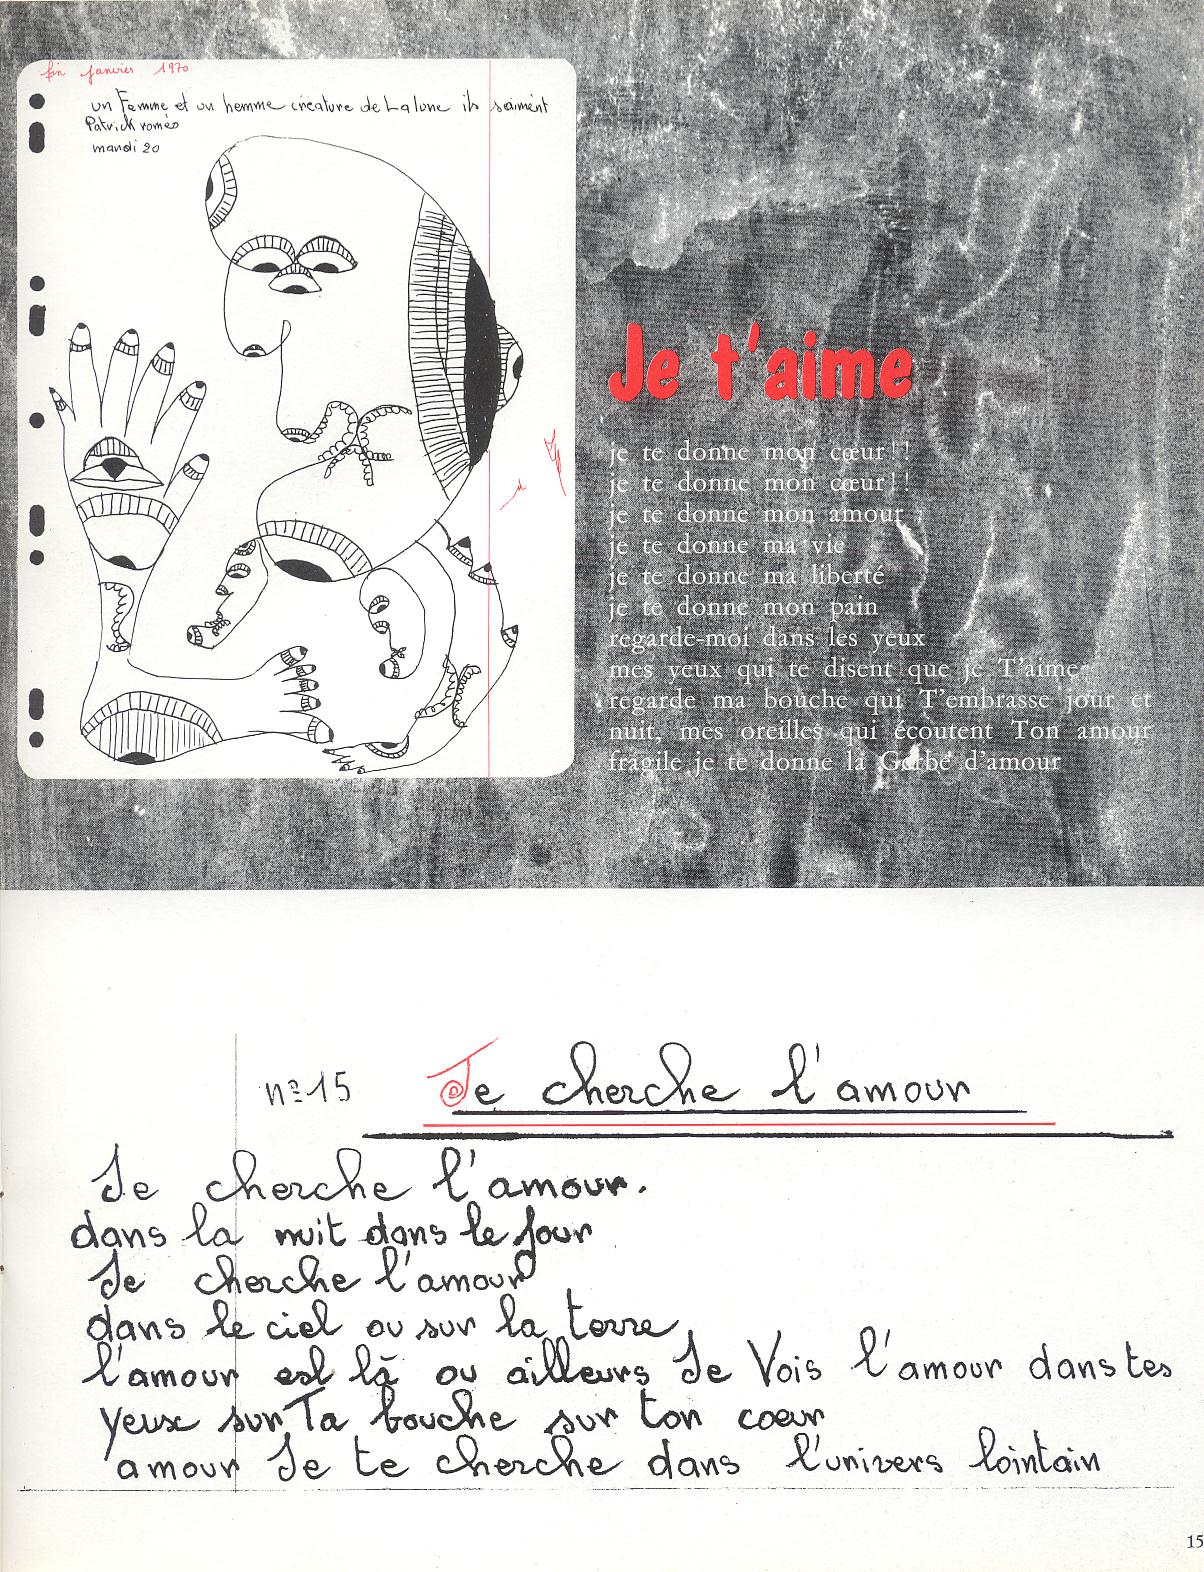 fin janvier 1970
un Femme et un homme créature de La lune ils saiment
Patrick roméo
mardi 20
Je t'aime
je te donne mon cœur!!
je te donne mon cœur!!
je te donne mon amour
je te donne ma vie
je te donne ma liberté
je te donne mon pain
regarde-moi dans les yeux
mes yeux qui te disent que je T'aime
regarde ma bouche qui T'embrasse jour et
nuit, mes oreilles qui écoutent Ton amour
fragile je te donne la Gerbe d'amour
nº 15 Je cherche l'amour
Je cherche l'amour.
dans la nuit dans le jour
Je cherche l'amour
dans le ciel ou sur la terre
l'amour est là ou ailleurs Je Vois l'amour dans tes
yeux sur Ta bouche sur ton cœur
amour Je te cherche dans l'univers lointain
15